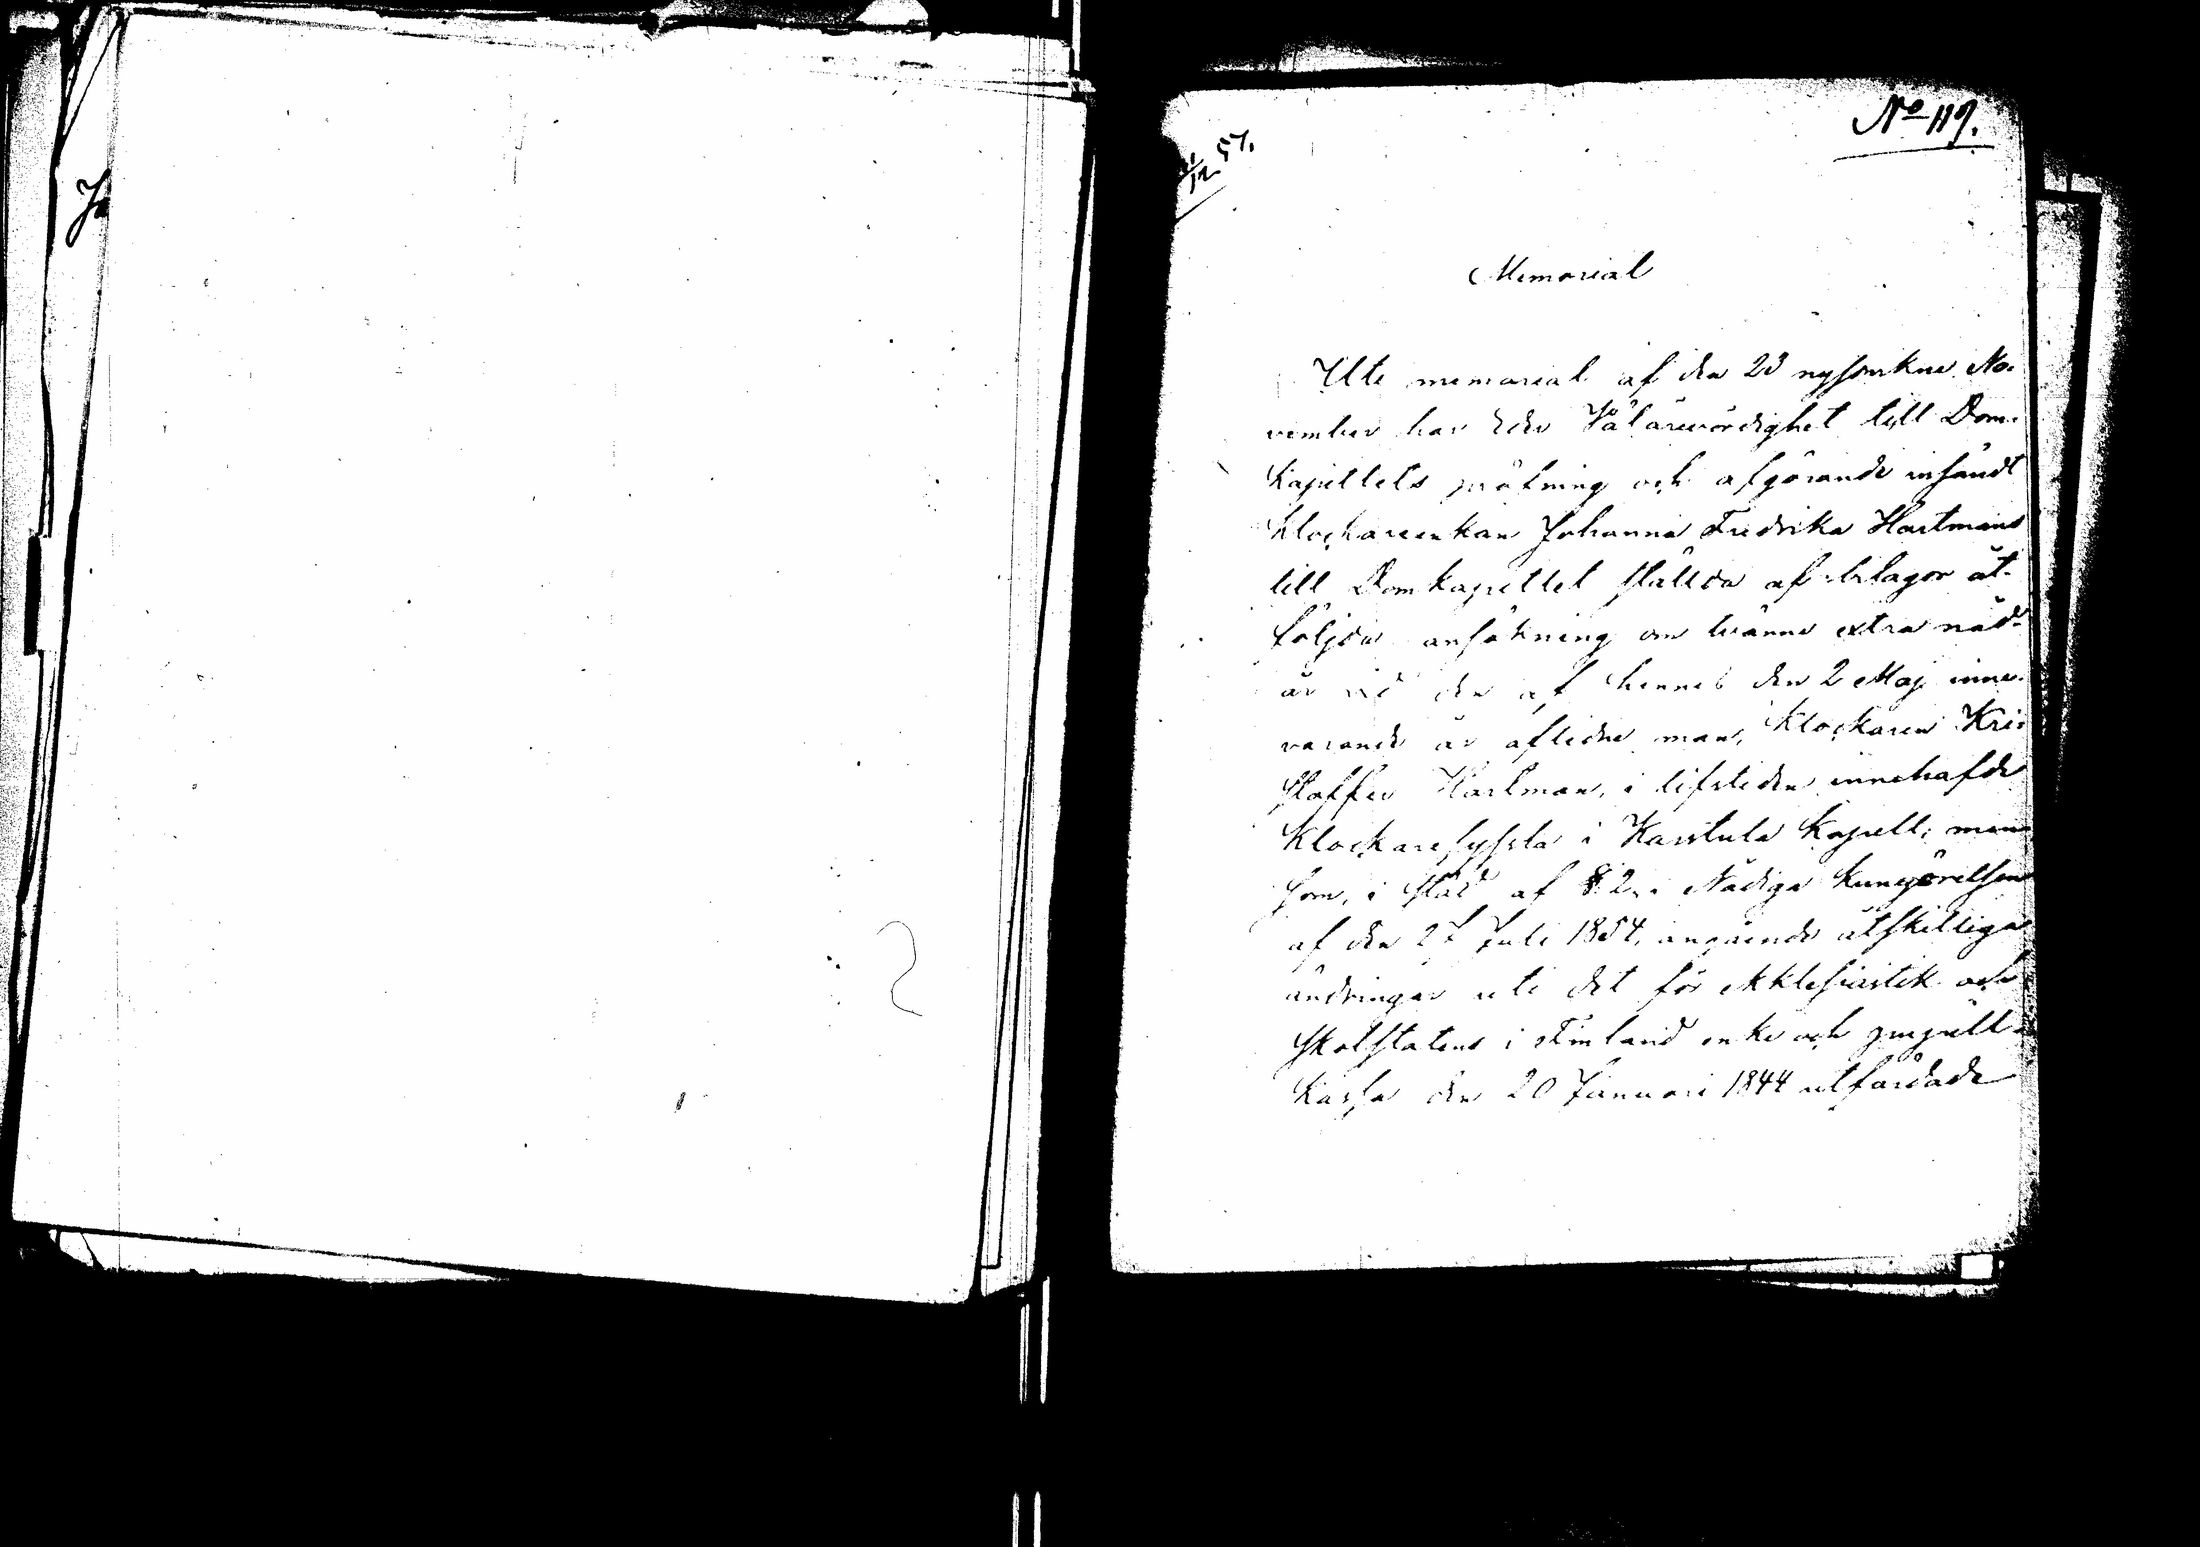 No 119.
1/12 57.
Memorial
Uti memorial af den 23 nyssvikne No-
vember har Eder Vålärevördighet till Dom-
kapitlets pröfning och afgörande insändt
Klockareenkan Johanna Fredrika Hartmans
till Domkapitlet ställda af bilagor åt-
följda ansökning om tvänne extra nåd-
år vid den af hennes den 2 Maj inne-
varande år aflidne man, Klockaren Kri-
stoffer Hartman, i lifstiden innehafde
Klockaresyssla i Karstula Kapell; men
som, i stöd af § 2 i Nådiga Kungörelsen
af den 27 Juli 1854, angående åtskilliga
ändringar uti det för Ekklesiastik och
Skolstatens i Finland enke och pupill-
Kassa den 20 Januari 1844 utfärdade